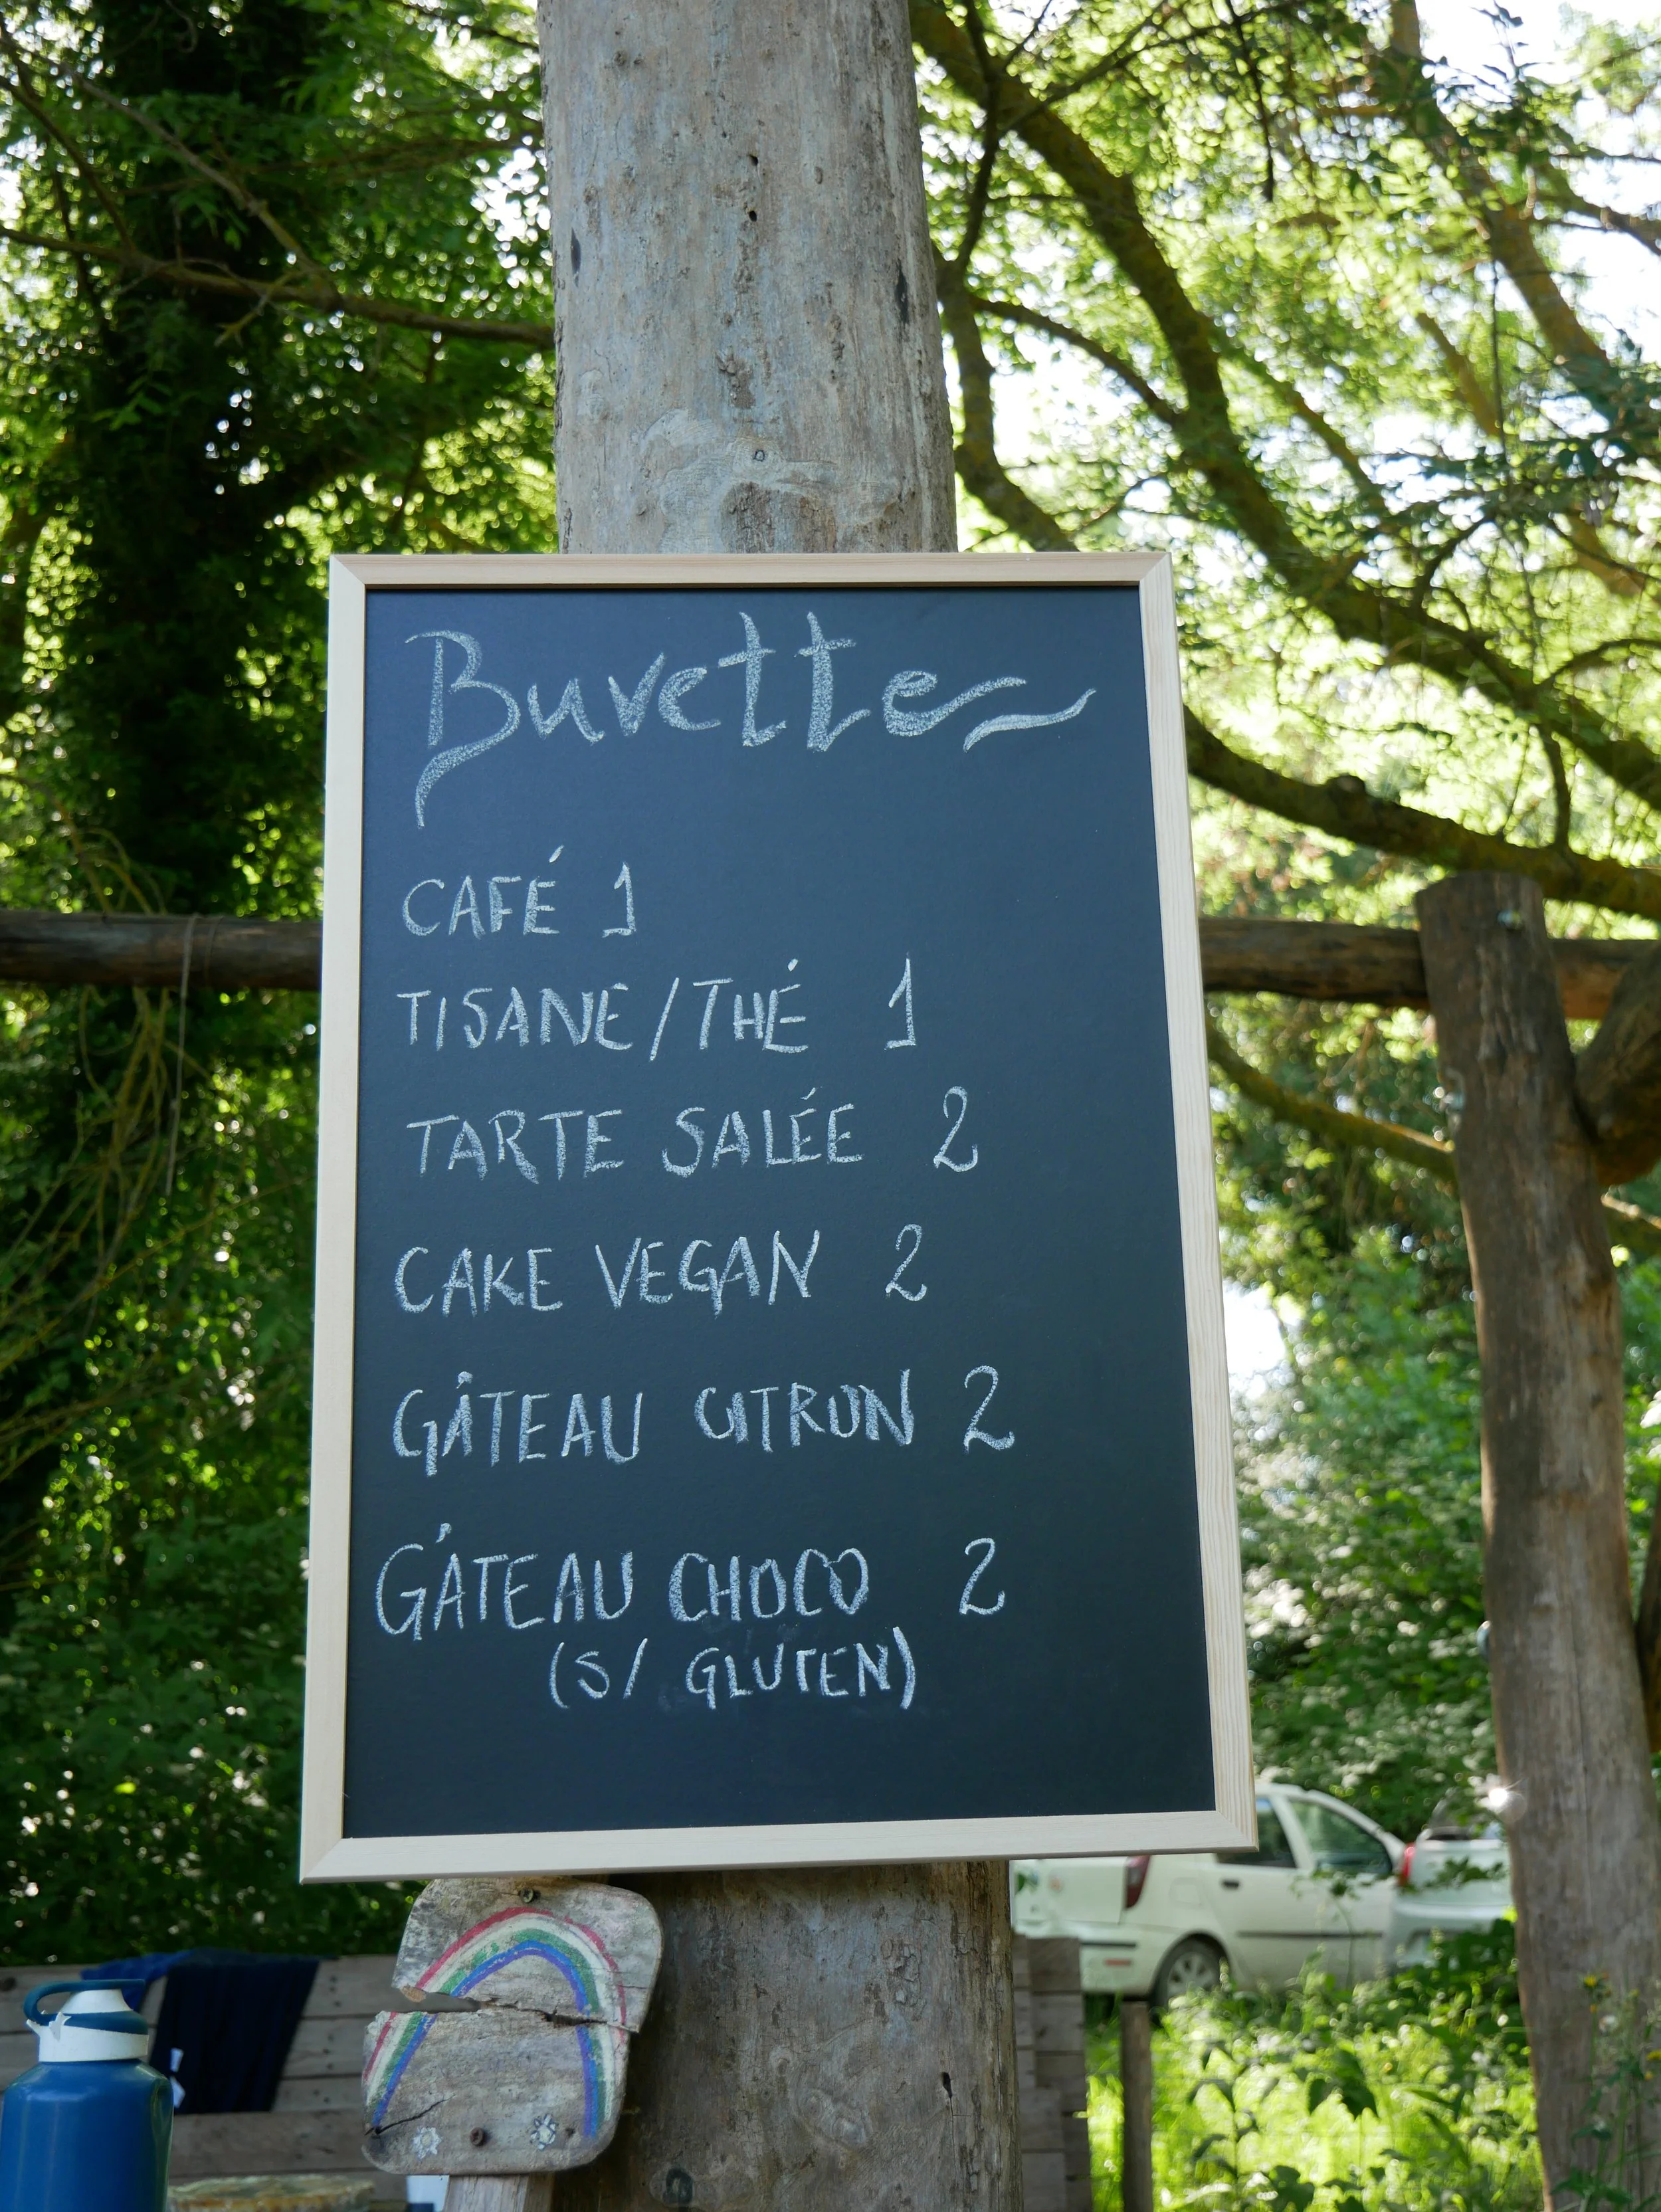 Buvette
CAFÉ 1
TISANE/THÉ 1
TARTE SALÉE 2
CAKE VEGAN 2
GÂTEAU CITRON 2
GÂTEAU CHOCO 2
(S/ GLUTEN)